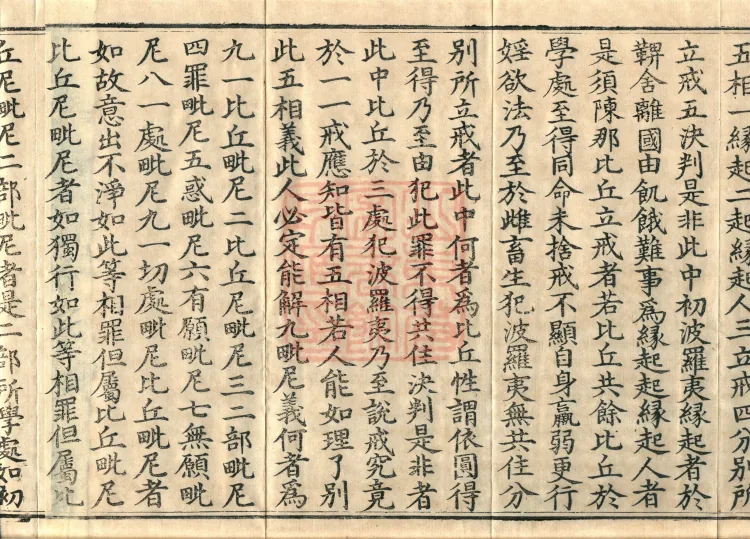 五相一緣起二起緣起人三立戒四分別所
立戒五決判是非此中初波羅夷緣起者於
鞞舍離國由飢餓難事為緣起起緣起人者
是須陳那比丘立戒者若比丘共餘比丘於
學處至得同命未捨戒不顯自身羸弱更行
婬欲法乃至於雌畜生犯波羅夷無共住分
別所立戒者此中何者為比丘性謂依圓得
至得乃至由犯此罪不得共住決判是非者
此中比丘於三處犯波羅夷乃至說戒究竟
於一一戒應知皆有五相若人能如理了別
此五相義此人必定能解九毗尼義何者為
九一比丘毗尼二比丘尼毗尼三二部毗尼
四罪毗尼五惑毗尼六有願毗尼七無願毗
尼八一處毗尼九一切處毗尼比丘毗尼者
如故意出不淨如此等相罪但屬比丘毗尼
比丘尼毗尼者如獨行如此等相罪但屬比
丘尼毗尼二部毗尼者是二部所學處如初